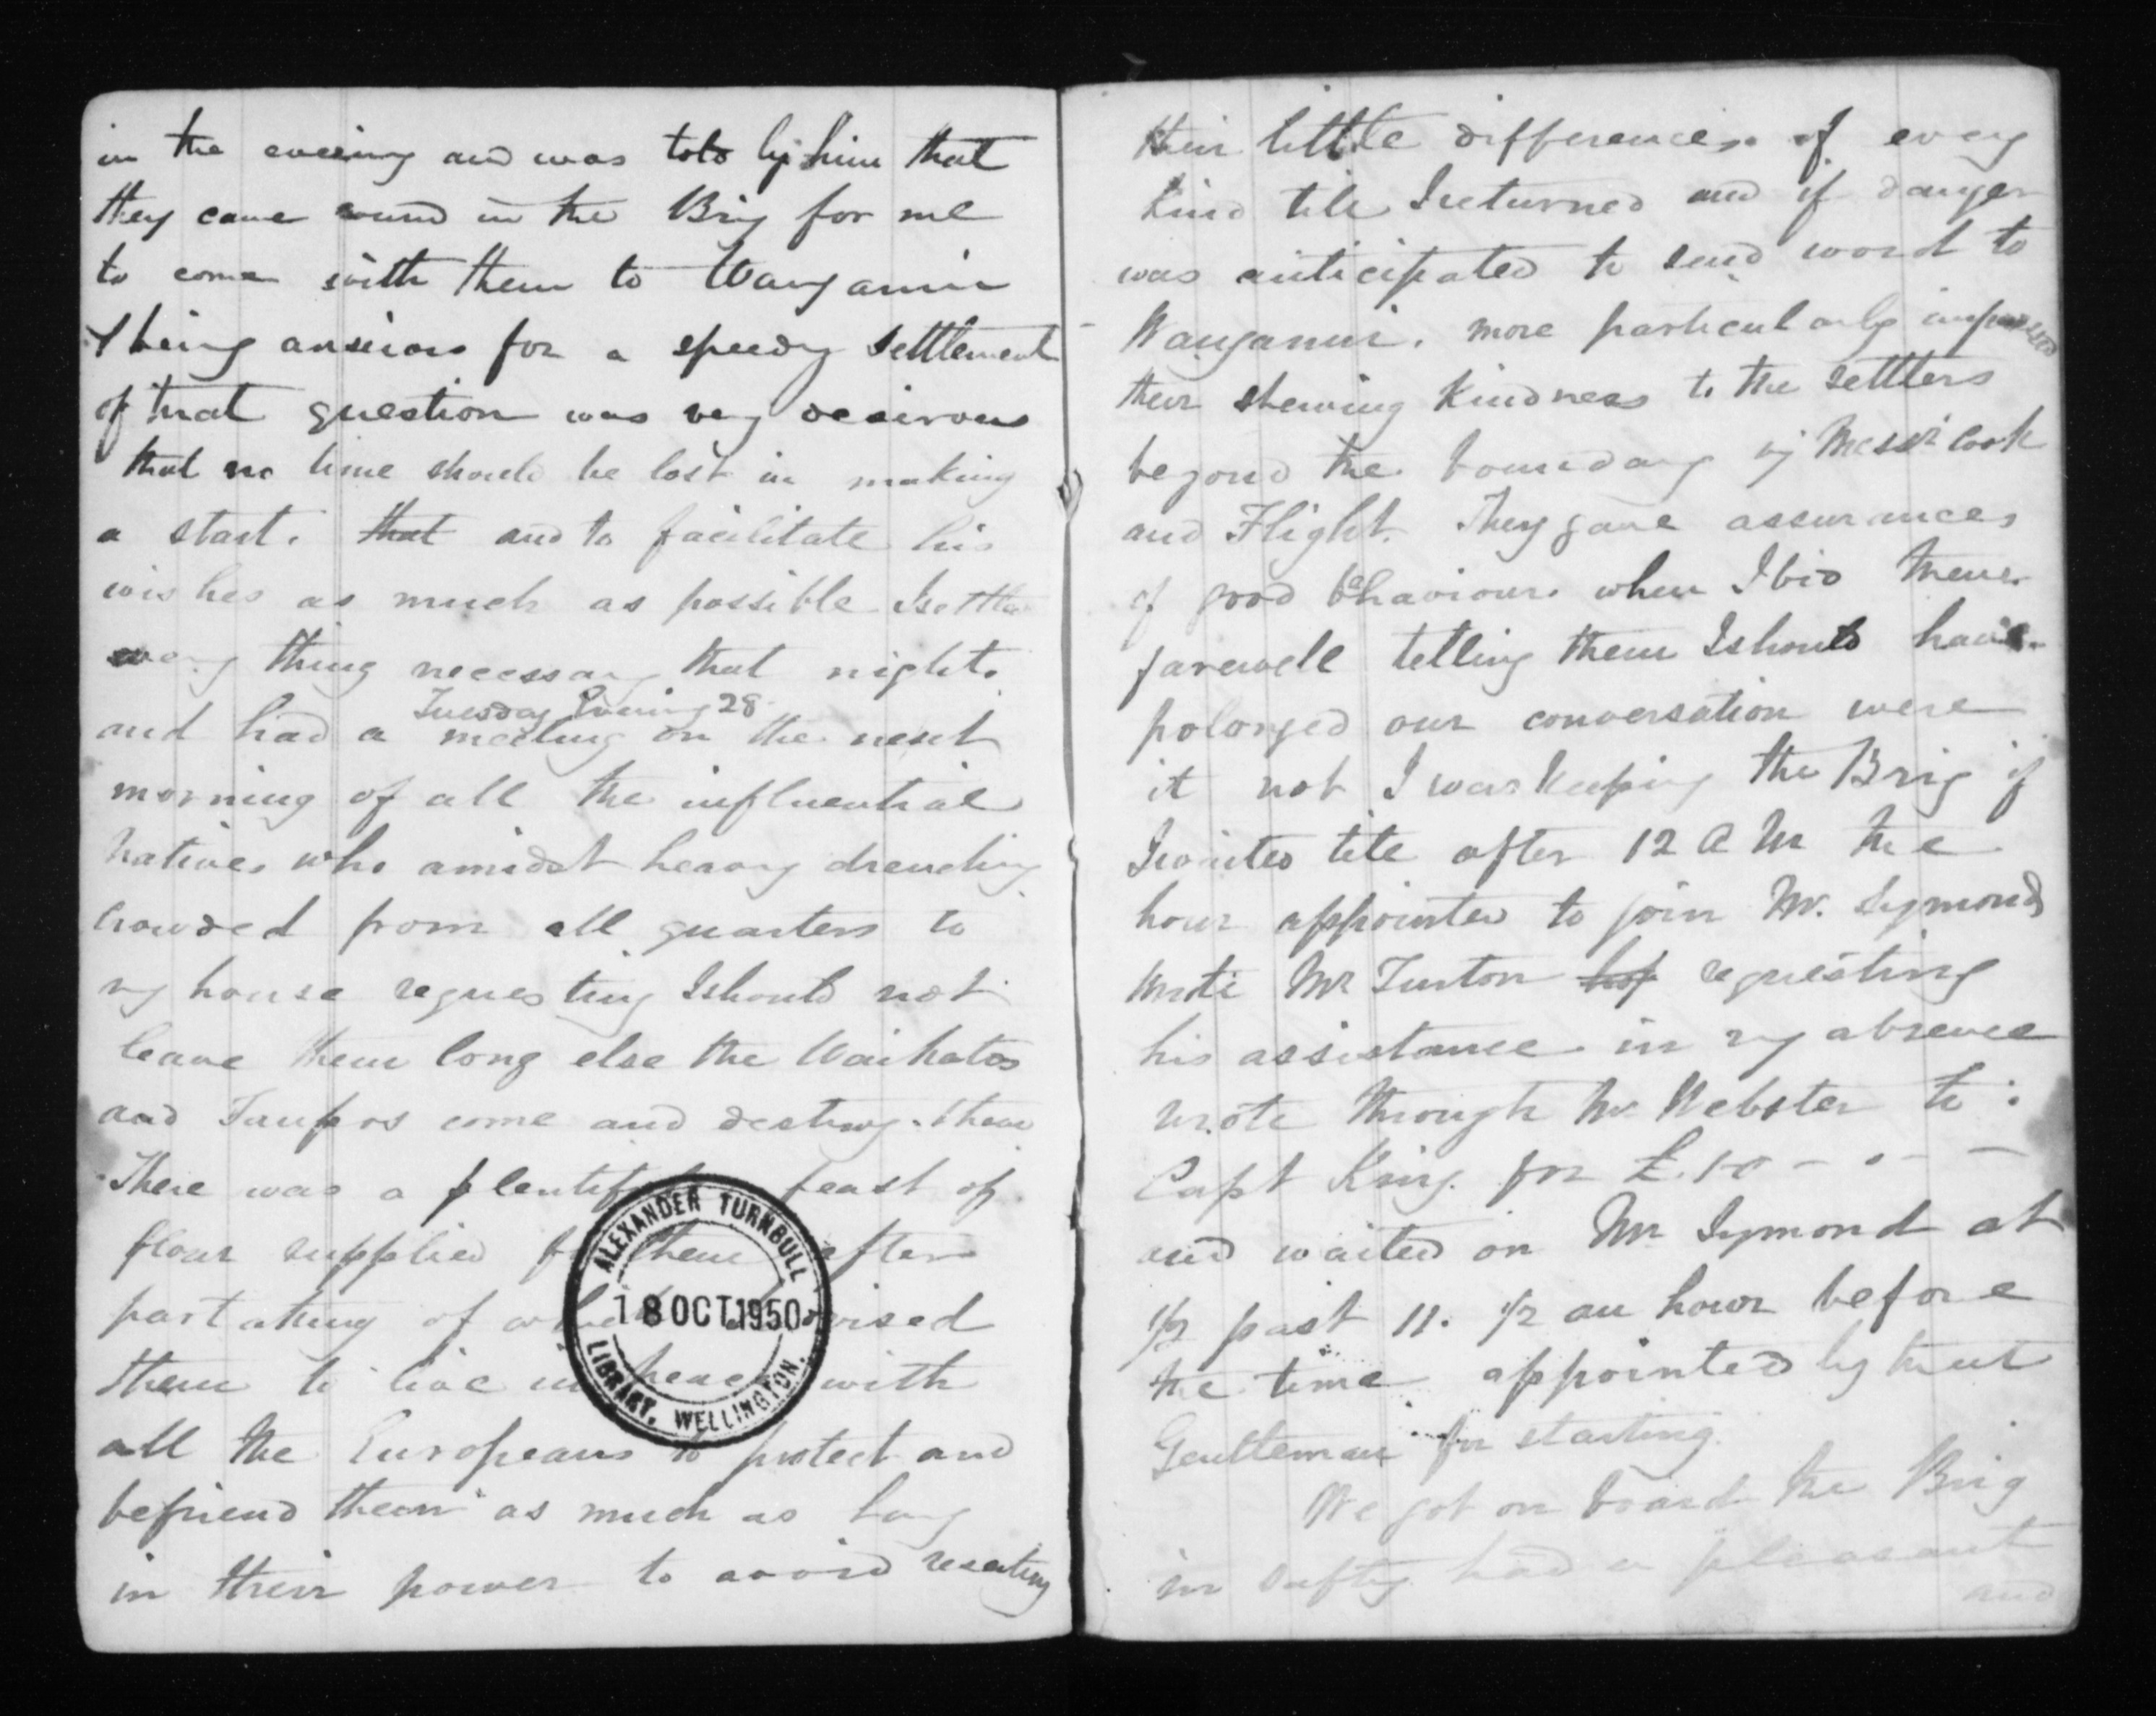 in the evening and was told by him that
they came round in the Brig for me
to come with them to Wanganui
I being anxious for a speedy settlement
of that question was very desirous
that no time should be lost in making
a start. that and to facilitate his
wishes as much as possible I settled
every thing necessary that night.
Tuesday Evening 28
and had a meeting on the next
morning of all the influential
Natives who amidst heavy drenching
crowded from all quarters to
my house requesting I should not
leave them long else the Waikatos
and Taupos come and destroy them
There was a plentiful feast of
flour supplied for them after
partaking of which advised
them to live in peace with
all the Europeans to protect and
befriend them as much as lay
in their power to avoid
ALEXANDER TURNBULL
18 OCT 1950
LIBRARY, WELLINGTON.
their little differences of every
kind till I returned and if danger
was anticipated to send word to
Wanganui. more particularly impressed
their shewing kindness to the settlers
beyond the boundary vj Messrs Cook
and Flight. They gave assurances
of good behaviour. when I bid them
farewell telling them I should have
polonged our conversation were
it not I was keeping the Brig if
I waited till after 12 A M the
hour appointed to join Mr. Symonds
wrote Mr Turton requesting
his assistance in my absence
wrote through Mr Webster to
Capt King. for £.10 - " -
and waited on Mr Symond at
1/2 past 11. 1/2 an hour before
the time appointed by that
Gentleman for starting.
We got on board the Brig
in safty had a pleasant
and